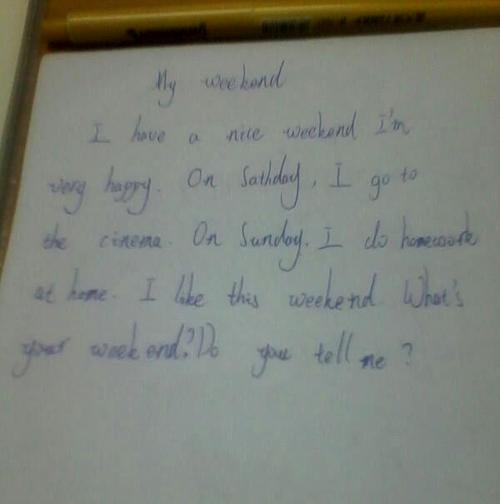 My weekend
I have a nice weekend I'm
very happy. On Sathday, I go to
the cinema. On Sunday. I do homework
at home. I like this weekend. What's
your weekend? Do you tell me?